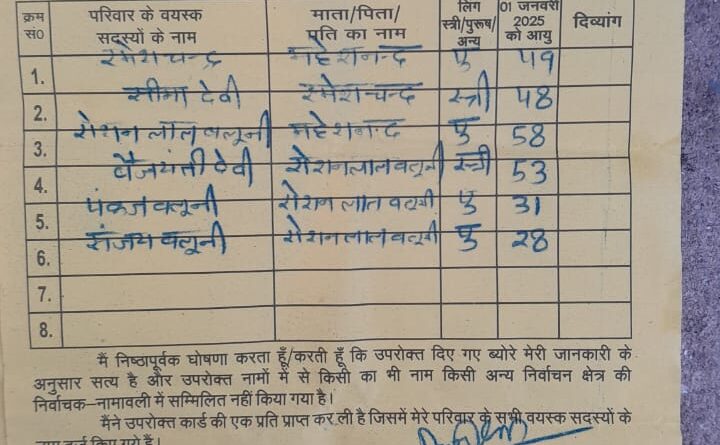 क्रम सं० परिवार के वयस्क सदस्यों के नाम माता/पिता/पति का नाम लिंग स्त्री/पुरूष/अन्य 01 जनवरी 2025 को आयु दिव्यांग
1. रमेश चन्द्र महेशानन्द पु 49
2. सीमा देवी रमेश चन्द्र स्त्री 48
3. रोशन लाल बलूनी महेशानन्द पु 58
4. वैजयंती देवी रोशनलाल बलूनी स्त्री 53
5. पंकज बलूनी रोशन लाल बलूनी पु 31
6. संजय बलूनी रोशनलाल बलूनी पु 28
7.
8.
मैं निष्ठापूर्वक घोषणा करता हूँ/करती हूँ कि उपरोक्त दिए गए ब्योरे मेरी जानकारी के
अनुसार सत्य है और उपरोक्त नामों में से किसी का भी नाम किसी अन्य निर्वाचन क्षेत्र की
निर्वाचक–नामावली में सम्मिलित नहीं किया गया है।
मैंने उपरोक्त कार्ड की एक प्रति प्राप्त कर ली है जिसमें मेरे परिवार के सभी वयस्क सदस्यों के
नाम दर्ज किए गये हैं।